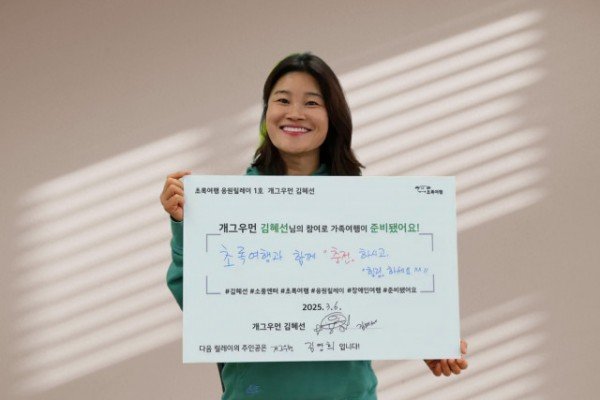 초록여행 응원릴레이 1호 개그우먼 김혜선
초록여행
개그우먼 김혜선님의 참여로 가족여행이 준비됐어요!
초록여행과 함께 "충전" 하시고,
"힐링" 하세요 ^^//
#김혜선 #소중엔터 #초록여행 #응원릴레이 #장애인여행 #준비됐어요
2025. 3. 6.
개그우먼 김혜선
다음 릴레이의 주인공은 개그우먼 김영희 입니다!